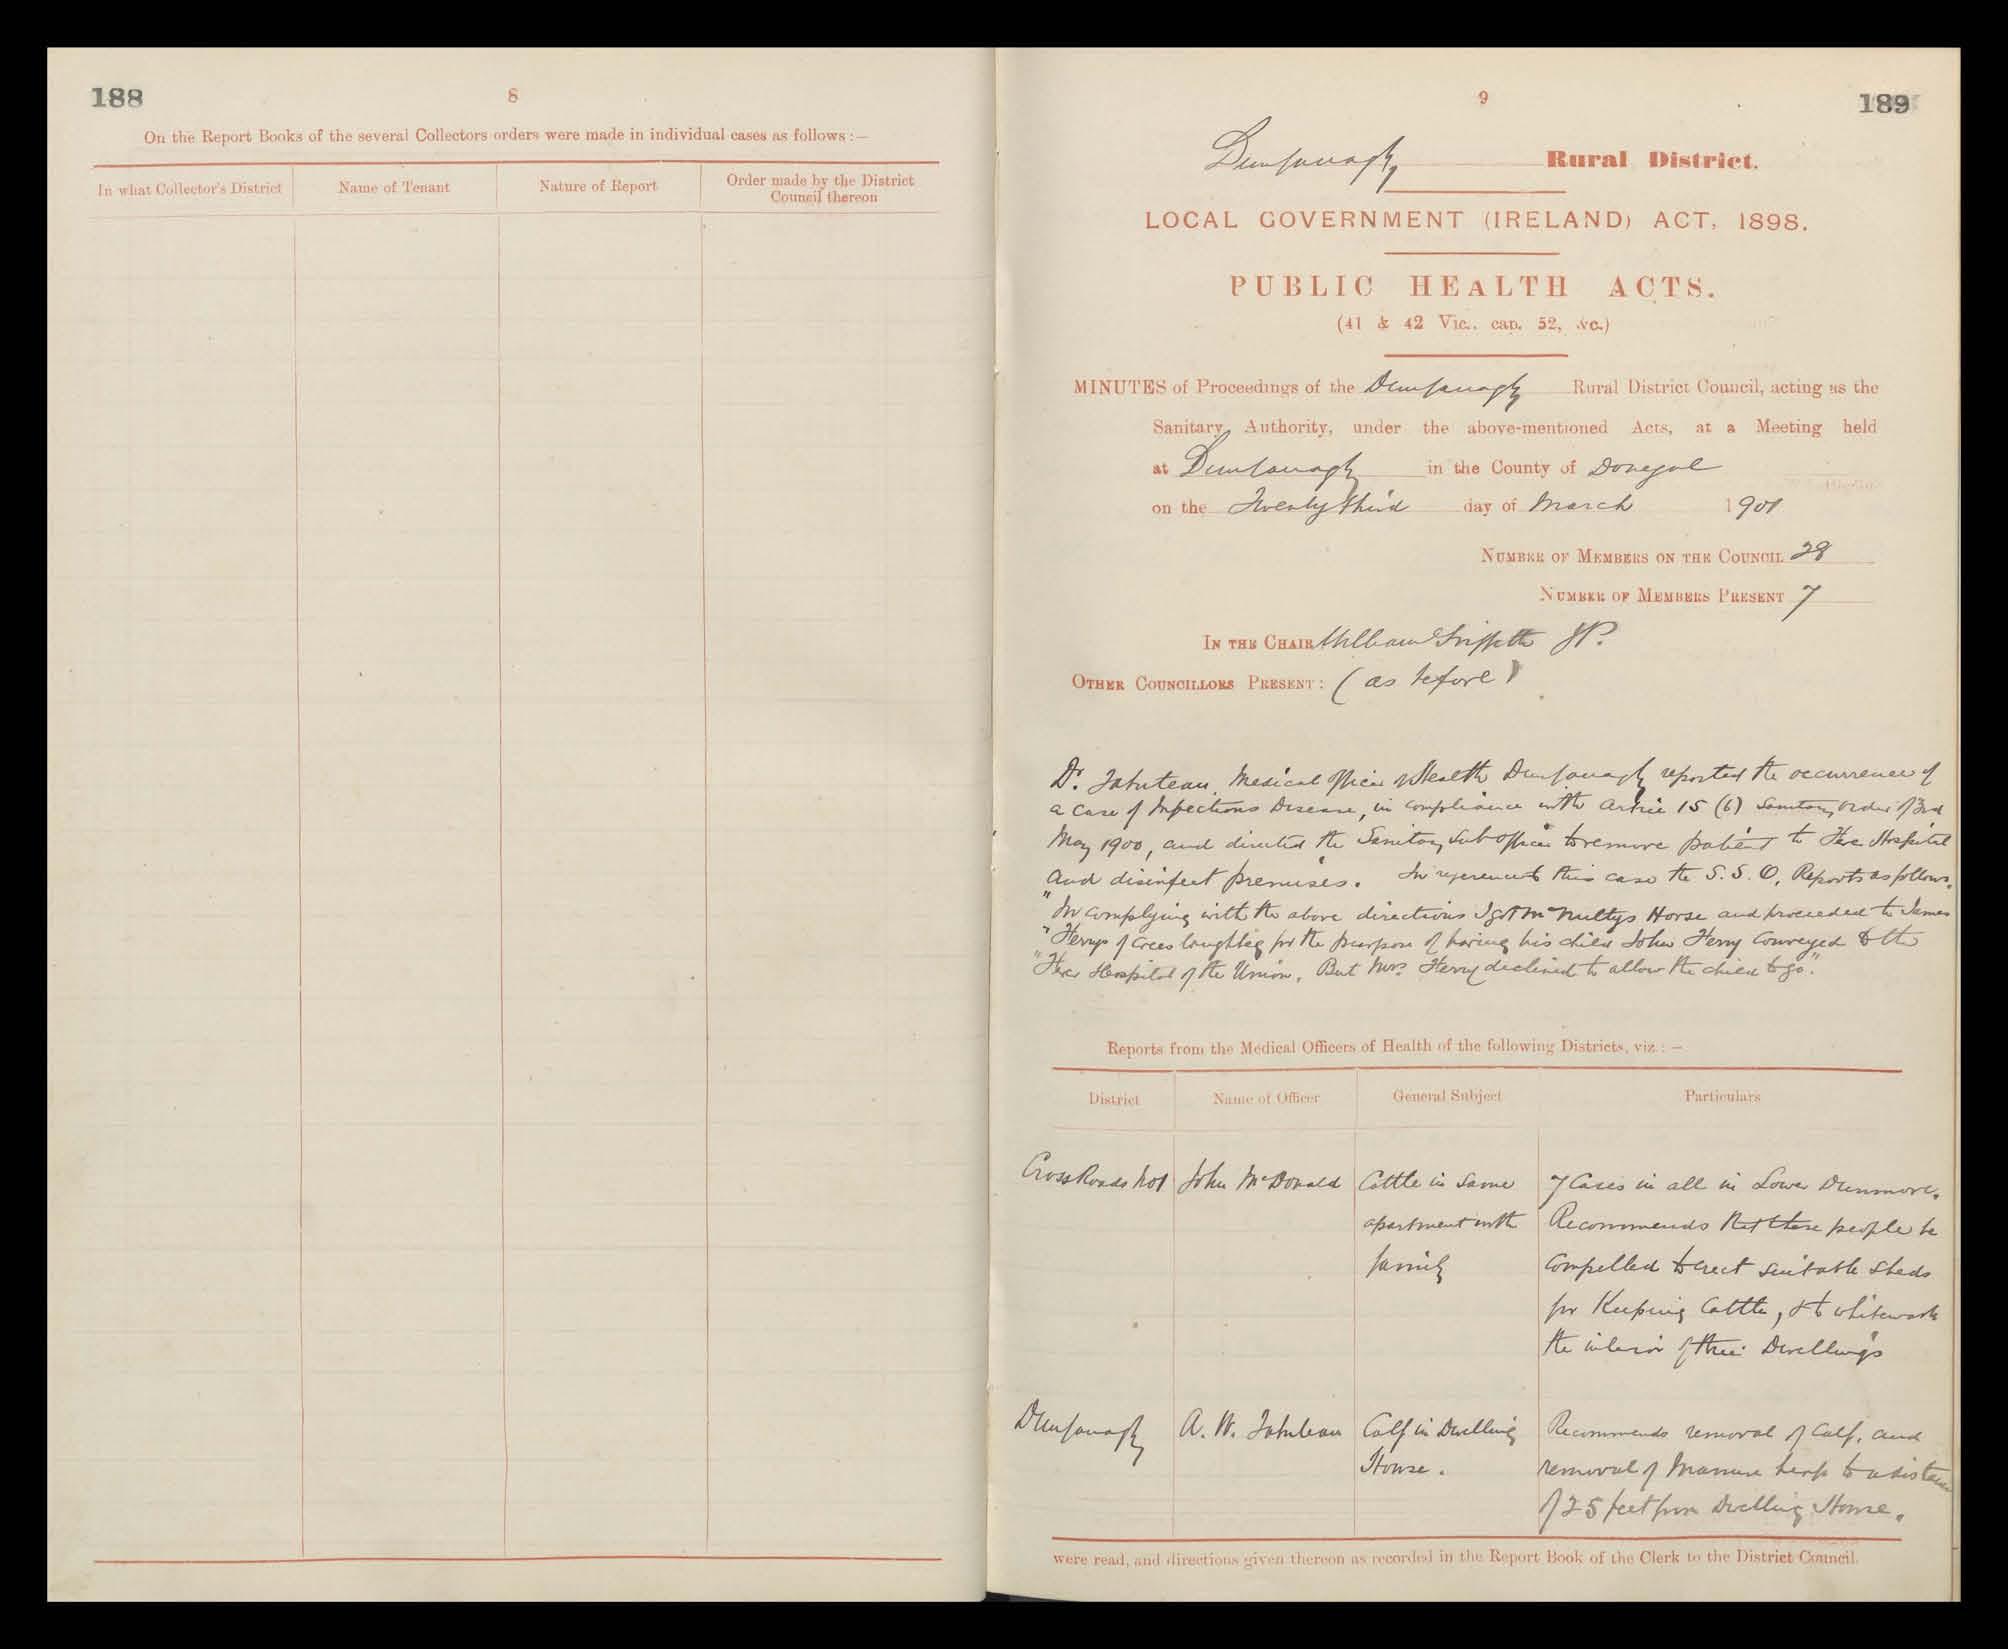 188
8
On the Report Books of the several Collectors orders were made in individual cases as follows :—
In what Collector's District
Name of Tenant
Nature of Report
Order made by the District
Council thereon
9
189
Dunfanaghy Rural District.
LOCAL GOVERNMENT (IRELAND) ACT, 1898.
PUBLIC HEALTH ACTS.
(41 & 42 Vic., cap. 52, &c.)
MINUTES of Proceedings of the Dunfanaghy Rural District Council, acting as the
Sanitary Authority, under the above-mentioned Acts, at a Meeting held
at Dunfanaghy in the County of Donegal
on the Twenty third day of March 1901
NUMBER OF MEMBERS ON THE COUNCIL 28
NUMBER OF MEMBERS PRESENT 7
IN THE CHAIR William Griffith JP.
OTHER COUNCILLORS PRESENT : (as before)
Dr. Tabuteau, Medical Officer of Health Dunfanaghy reported the occurrence of
a case of Infectious Disease, in compliance with Article 15 (6) Sanitary Order of 3rd
May 1900, and directed the Sanitary Sub officer to remove patient to Fever Hospital
and disinfect premises. In reference to this case the S. S. O. Reports as follows.
"In complying with the above directions I got McNultys Horse and proceeded to James
"Ferrys of Creeslaughtey for the purpose of having his child John Ferry conveyed to the
"Fever Hospital of the Union. But Mrs. Ferry declined to allow the child to go."
Reports from the Medical Officers of Health of the following Districts, viz. :—
District
Name of Officer
General Subject
Particulars
Cross Roads No1
John McDonald
Cattle in same
apartment with
family
7 Cases in all in Lower Dunmore.
Recommends that these people be
compelled to erect suitable sheds
for Keeping Cattle, & to whitewash
the interior of their Dwellings
Dunfanaghy
A. W. Tabuteau
Calf in Dwelling
House.
Recommends removal of Calf, and
removal of Manure heap to a distance
of 25 feet from Dwelling House.
were read, and directions given thereon as recorded in the Report Book of the Clerk to the District Council.